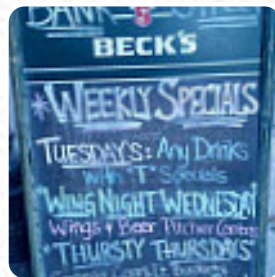 BANK
BECK'S
*WEEKLY SPECIALS
TUESDAYS: Any Drinks
with "T" Specials
"WING NIGHT WEDNESDAY"
Wings & Beer Pitcher Combos
"THURSTY THURSDAYS"